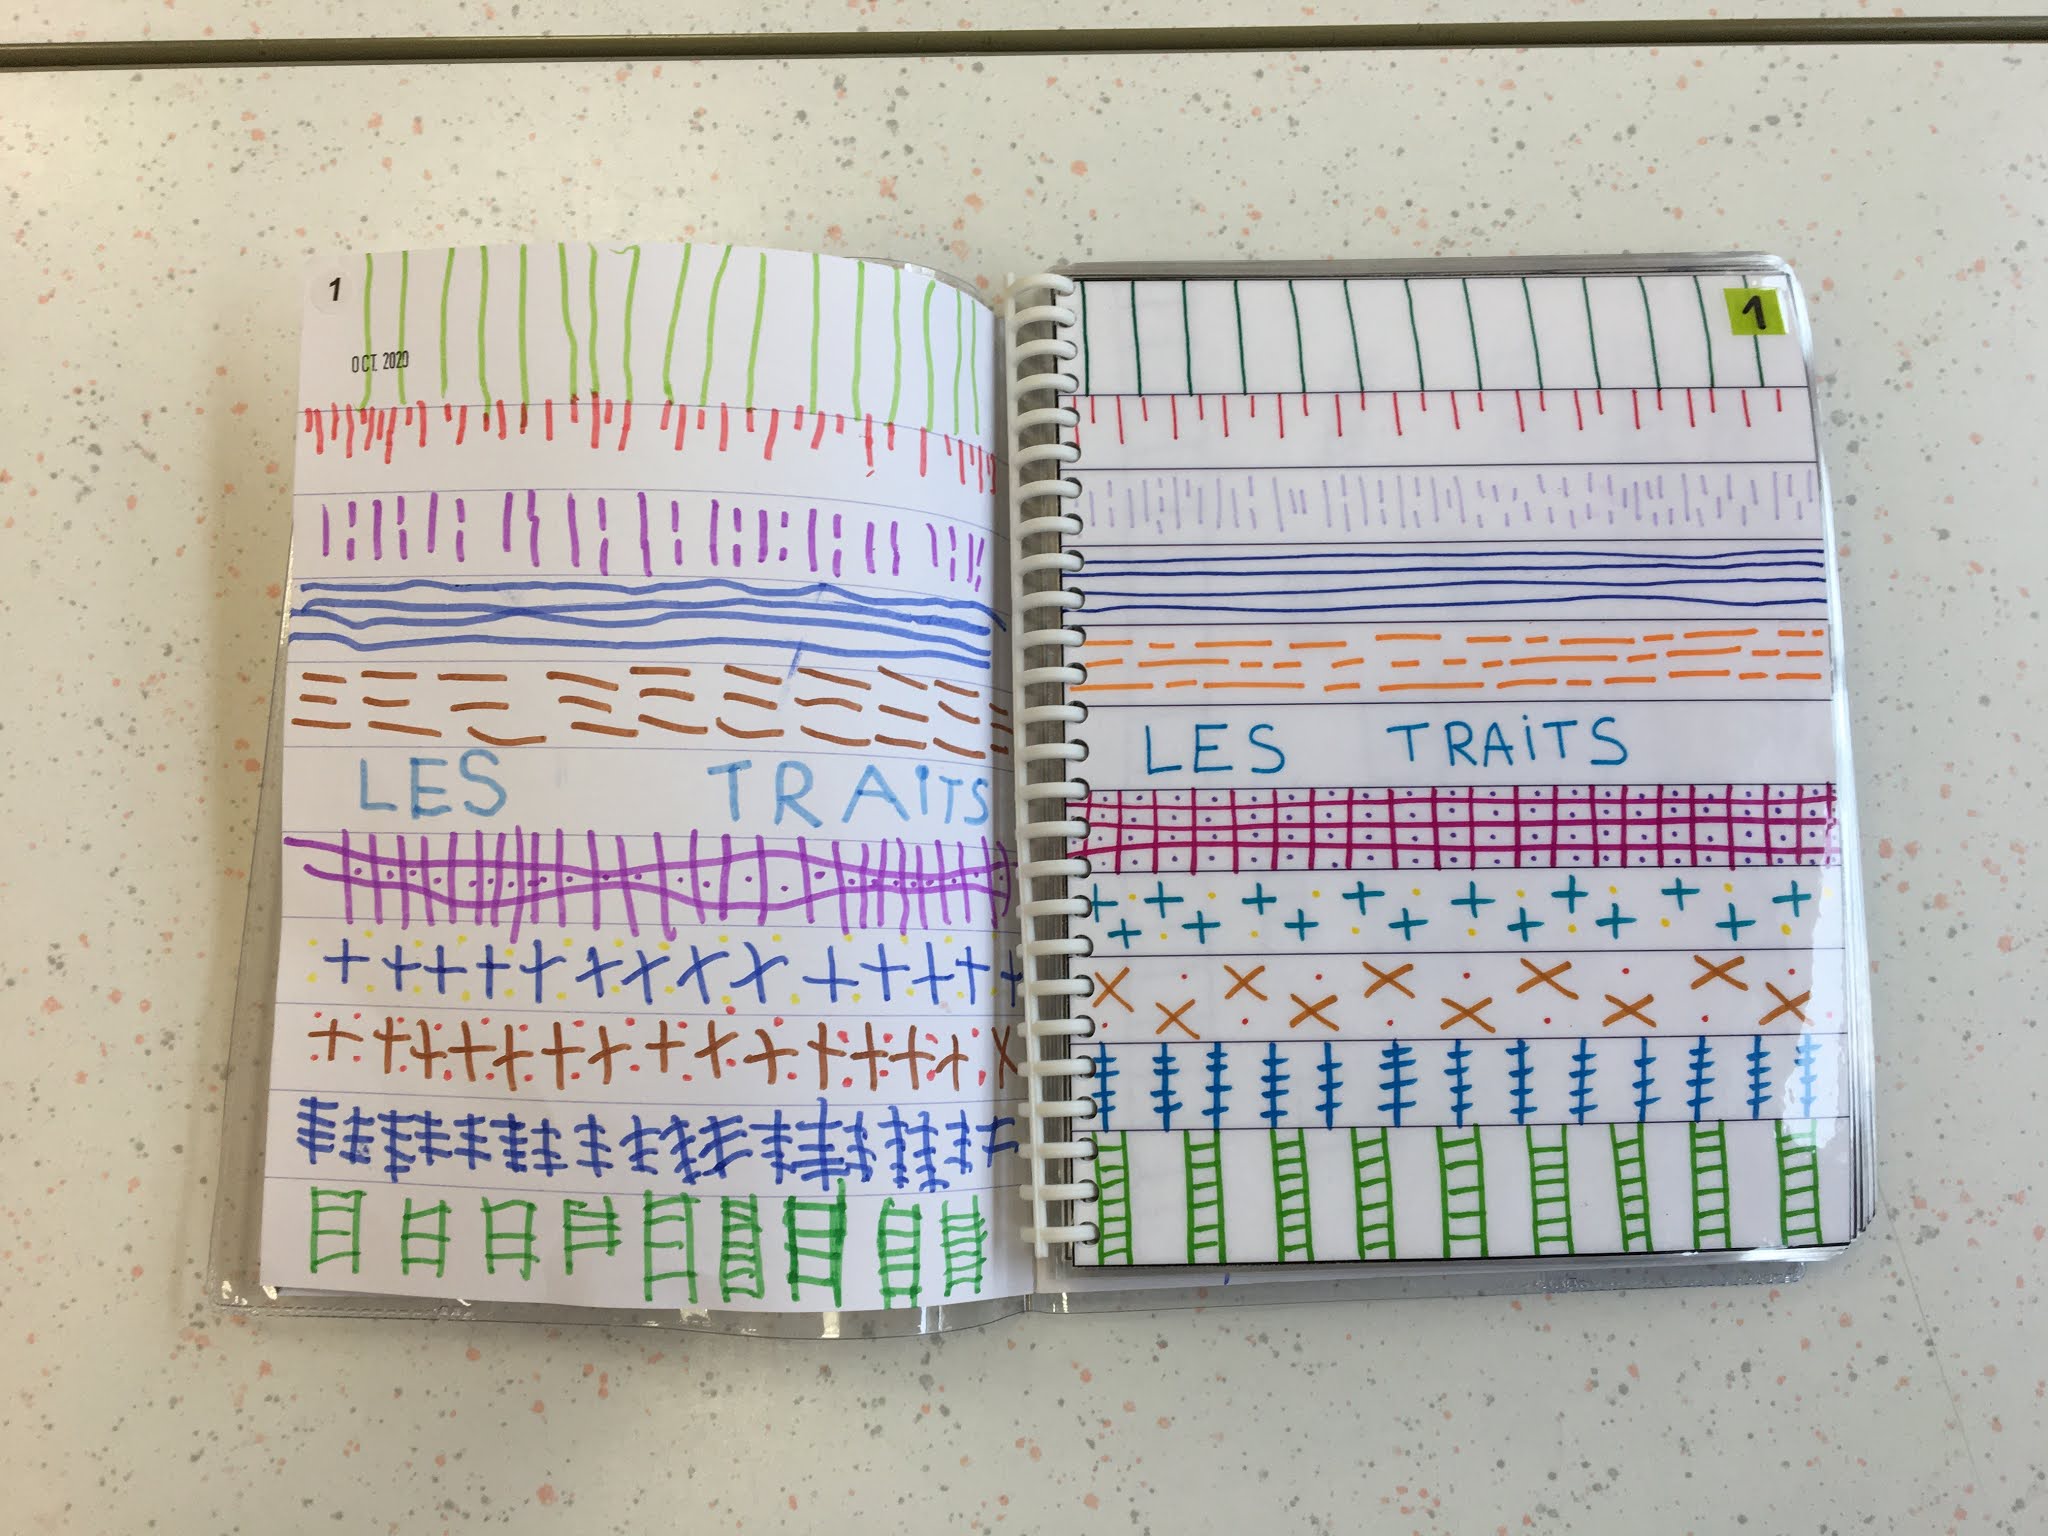 1
OCT. 2020
LES TRAiTS
1
LES TRAiTS